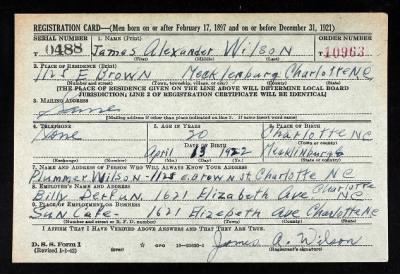 REGISTRATION CARD—(Men born on or after February 17, 1897 and on or before December 31, 1921)
SERIAL NUMBER 1. NAME (Print) ORDER NUMBER
T 0488 James Alexander Wilson T 10963
(First) (Middle) (Last)
2. PLACE OF RESIDENCE (Print)
1125 E Brown Mecklenburg Charlotte NC
(Number and street) (Town, township, village, or city) (County) (State)
[THE PLACE OF RESIDENCE GIVEN ON THE LINE ABOVE WILL DETERMINE LOCAL BOARD
JURISDICTION; LINE 2 OF REGISTRATION CERTIFICATE WILL BE IDENTICAL]
3. MAILING ADDRESS
Same
[Mailing address if other than place indicated on line 2. If same insert word same]
4. TELEPHONE 5. AGE IN YEARS 6. PLACE OF BIRTH
None 20 Charlotte NC
DATE OF BIRTH (Town or county)
April 13 1922 Mecklinburg
(Exchange) (Number) (Mo.) (Day) (Yr.) (State or country)
7. NAME AND ADDRESS OF PERSON WHO WILL ALWAYS KNOW YOUR ADDRESS
Plummer Wilson - 1125 E. Brown St Charlotte NC
8. EMPLOYER'S NAME AND ADDRESS
Billy 1621 Elizabeth Ave Charlotte NC
9. PLACE OF EMPLOYMENT OR BUSINESS
Sun Cafe - 1621 Elizepeth Ave Charlotte NC
(Number and street or R. F. D. number) (Town) (County) (State)
I AFFIRM THAT I HAVE VERIFIED ABOVE ANSWERS AND THAT THEY ARE TRUE.
D. S. S. Form 1
(Revised 1-1-42) GPO 16-21630-1
James A. Wilson